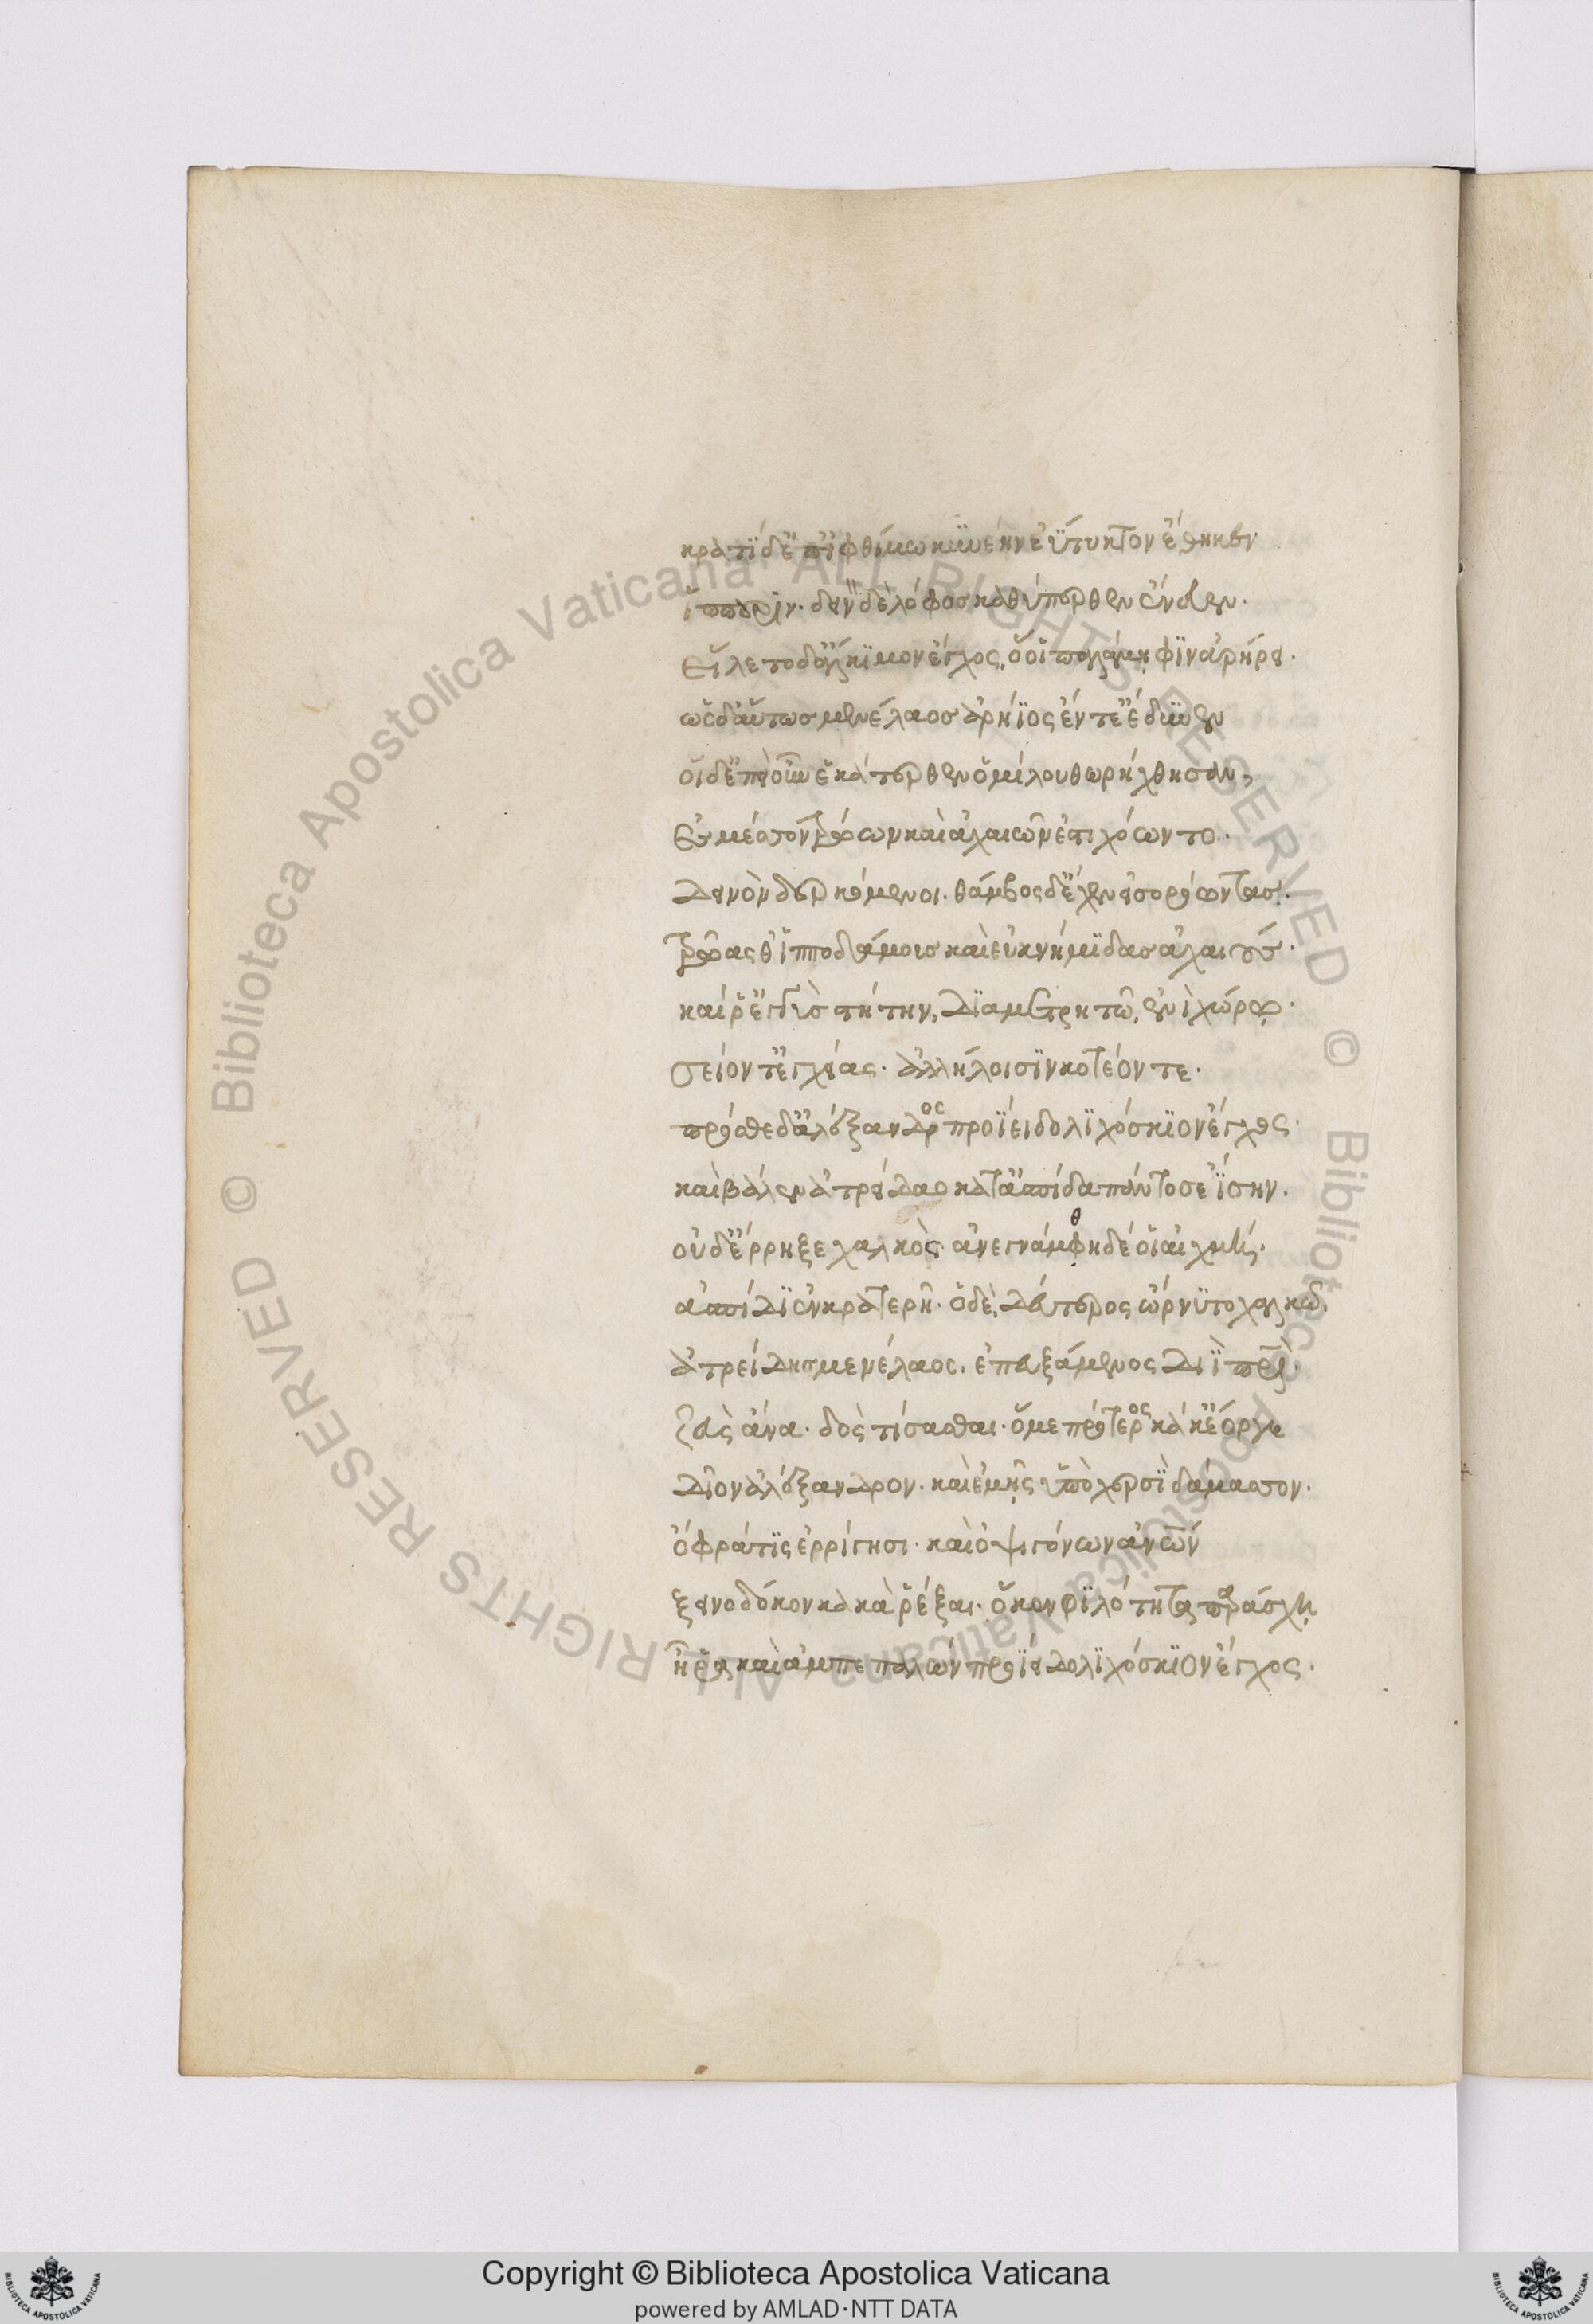 κρατὶ δ' ἐπ' ἰφθίμω κυνέην εὔτυκτον ἔθηκεν·
ἵππουριν· δεινὸν δὲ λόφος καθύπερθεν ἔνευεν·
εἵλετο δ' ἄλκιμον ἔγχος, ὅ οἱ παλάμηφιν ἀρήρει·
ὣς δ' αὔτως μενέλαος ἀρήϊος ἔντε' ἔδυνεν
οἱ δ' ἐπεὶ οὖν ἑκάτερθεν ὁμίλου θωρήχθησαν,
ἐς μέσον τρώων καὶ ἀχαιῶν ἐστιχόωντο·
δεινὸν δερκόμενοι· θάμβος δ' ἔχεν εἰσορόωντας·
τρῶας θ' ἱπποδάμοις καὶ εὐκνήμιδας ἀχαιούς·
καί ρ' ἐγγὺς στήτην, διαμετρητῶ ἐνὶ χώρῳ·
σείοντ' ἐγχείας· ἀλλήλοισιν κοτέοντε·
πρόσθε δ' ἀλέξανδρος προΐει δολιχόσκιον ἔγχος·
καὶ βάλεν ἀτρείδαο κατ' ἀσπίδα πάντοσε ἴσην·
οὐδ' ἔρρηξε χαλκὸς· ἀνεγνάμφθη δέ οἱ αἰχμή·
ἀσπίδι ἐν κρατερῆ· ὁ δὲ δεύτερος ὤρνυτο χαλκῶ·
ἀτρείδης μενέλαος· ἐπευξάμενος διὶ πρὶ·
ζεὺς ἄνα· δὸς τίσασθαι· ὅ με πρότερος κάκ' ἔοργε
δῖον ἀλέξανδρον· καὶ ἐμῆς ὑπὸ χερσὶ δάμασσον·
ὄφρά τις ἐρρίγησι· καὶ ὀψιγόνων ἀνων
ξεινοδόκον κακὰ ῥέξαι· ὅ κεν φιλότητα παράσχῃ
ἦ ῥα καὶ ἀμπεπαλὼν προΐει δολιχόσκιον ἔγχος·
© Biblioteca Apostolica Vaticana ALL RIGHTS RESERVED © Biblioteca Apostolica Vaticana ALL RIGHTS RESERVED
Copyright © Biblioteca Apostolica Vaticana
powered by AMLAD·NTT DATA
BIBLIOTECA APOSTOLICA VATICANA
BIBLIOTECA APOSTOLICA VATICANA